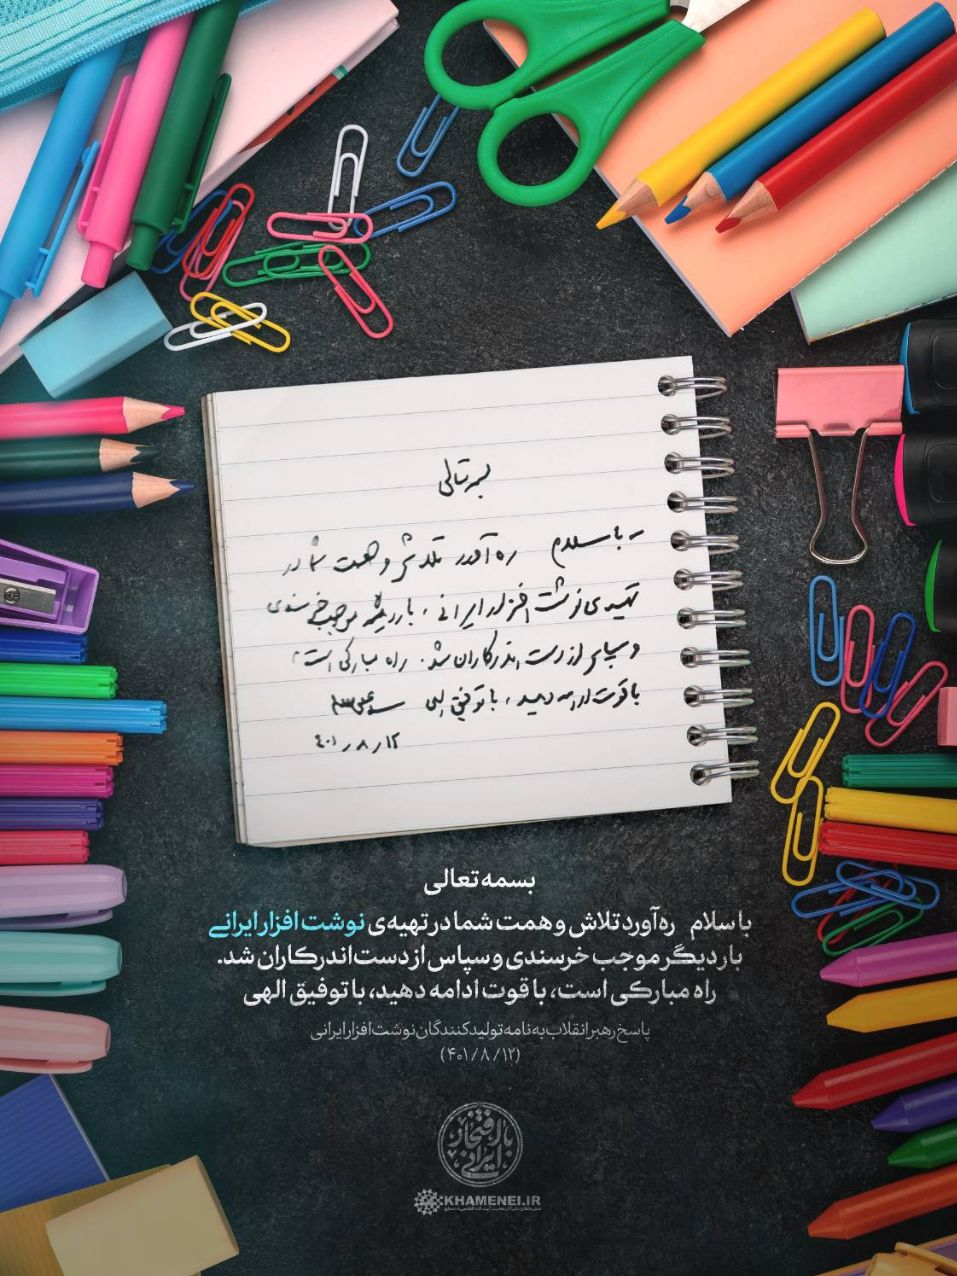 بسمه تعالی
- با سلام ره آورد تلاش و همت شما در
تهیه ی نوشت افزار ایرانی، بار دیگر موجب خرسندی
و سپاس از دست اندرکاران شد. راه مبارکی است،
با قوت ادامه دهید، با توفیق الهی
۴۰۱ / ۸ / ۱۲
بسمه تعالی
با سلام ره‌آورد تلاش و همت شما در تهیه‌ی نوشت افزار ایرانی
بار دیگر موجب خرسندی و سپاس از دست‌اندرکاران شد.
راه مبارکی است، با قوت ادامه دهید، با توفیق الهی
پاسخ رهبر انقلاب به نامه تولیدکنندگان نوشت‌افزار ایرانی
(۴۰۱/۸/۱۲)
با افتخار ایرانی
KHAMENEI.IR